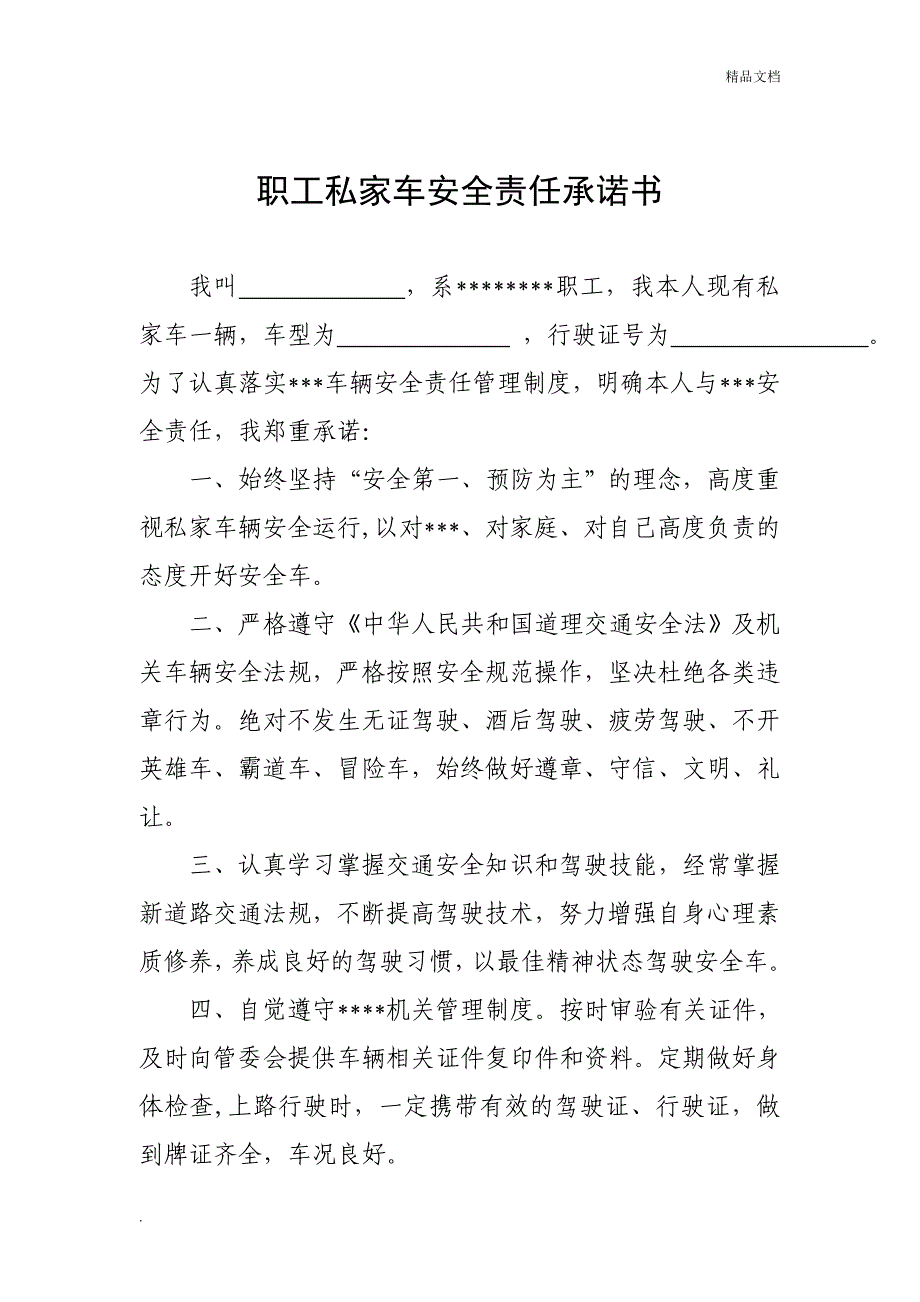 精品文档
职工私家车安全责任承诺书
我叫______________，系********职工，我本人现有私
家车一辆，车型为_______________ ，行驶证号为_________________。
为了认真落实***车辆安全责任管理制度，明确本人与***安
全责任，我郑重承诺：
一、始终坚持“安全第一、预防为主”的理念，高度重
视私家车辆安全运行,以对***、对家庭、对自己高度负责的
态度开好安全车。
二、严格遵守《中华人民共和国道理交通安全法》及机
关车辆安全法规，严格按照安全规范操作，坚决杜绝各类违
章行为。绝对不发生无证驾驶、酒后驾驶、疲劳驾驶、不开
英雄车、霸道车、冒险车，始终做好遵章、守信、文明、礼
让。
三、认真学习掌握交通安全知识和驾驶技能，经常掌握
新道路交通法规，不断提高驾驶技术，努力增强自身心理素
质修养,养成良好的驾驶习惯,以最佳精神状态驾驶安全车。
四、自觉遵守****机关管理制度。按时审验有关证件，
及时向管委会提供车辆相关证件复印件和资料。定期做好身
体检查,上路行驶时，一定携带有效的驾驶证、行驶证，做
到牌证齐全，车况良好。
.